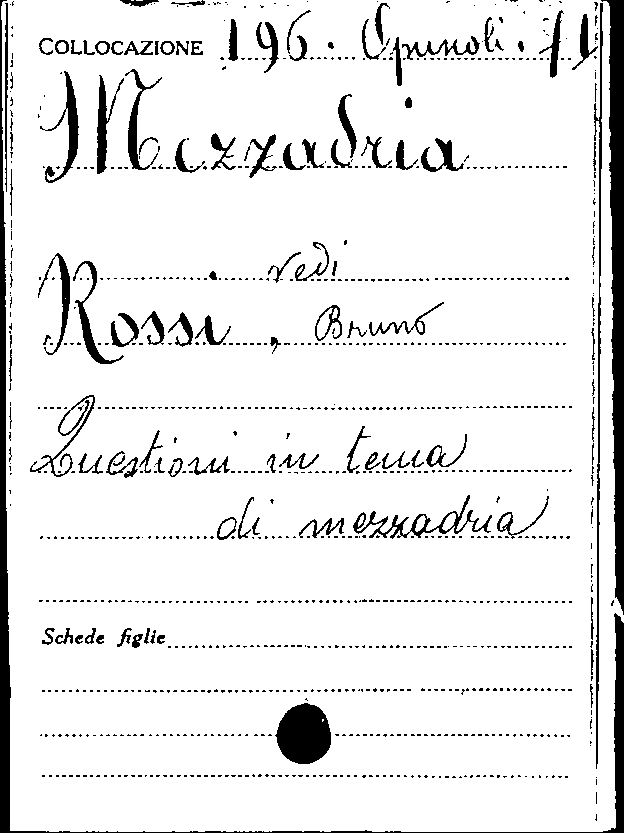 COLLOCAZIONE 196. Opuscoli. 71
Mezzadria
vedi
Rossi, Bruno
Questioni in tema
di mezzadria
Schede figlie